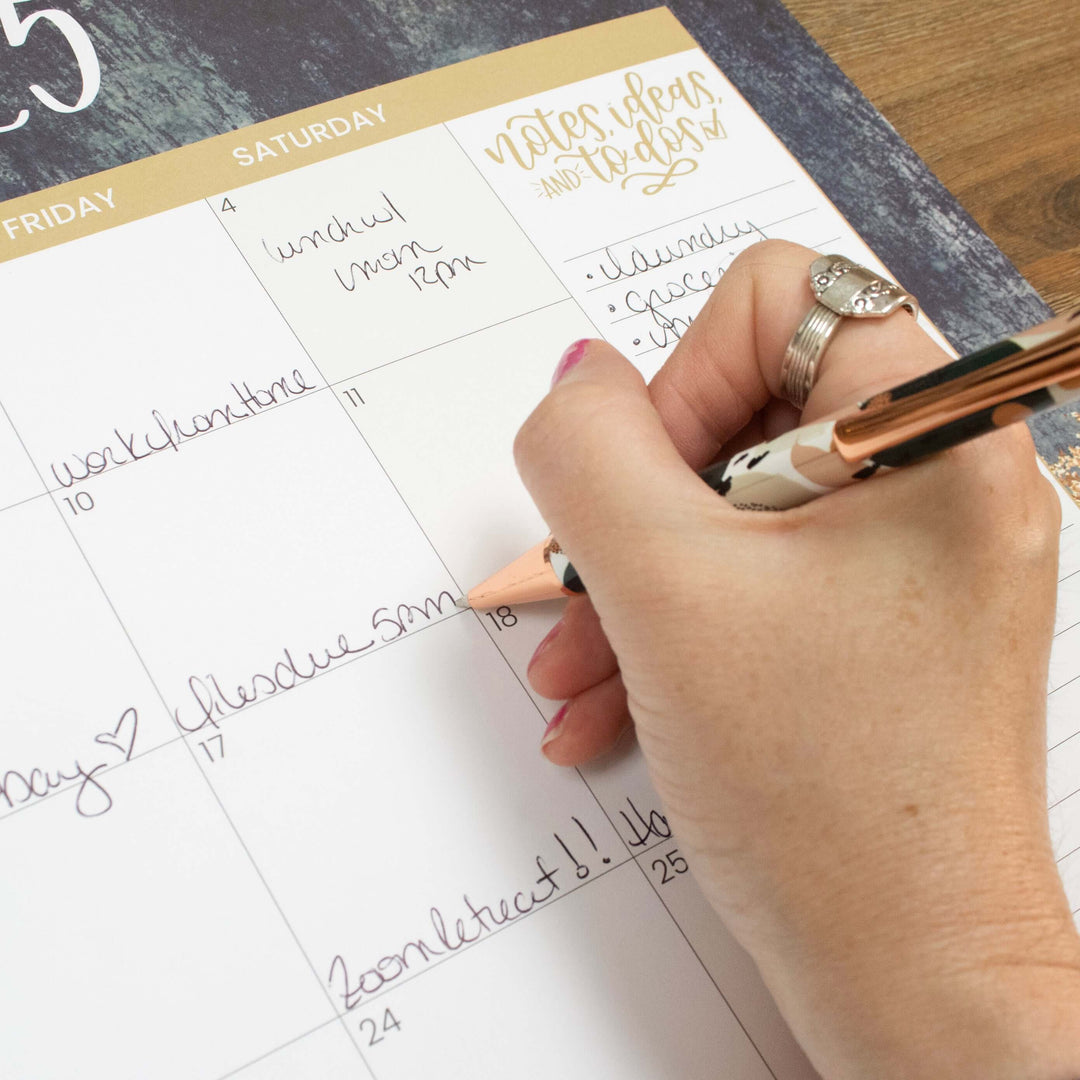 25
FRIDAY
SATURDAY
notes, ideas,
AND to-dos
4
lunch w/
mom
12pm
• laundry
• groceri
work from Home
10
11
files due 5pm
17
18
Day ♡
Zoom retreat!!
Ha
24
25